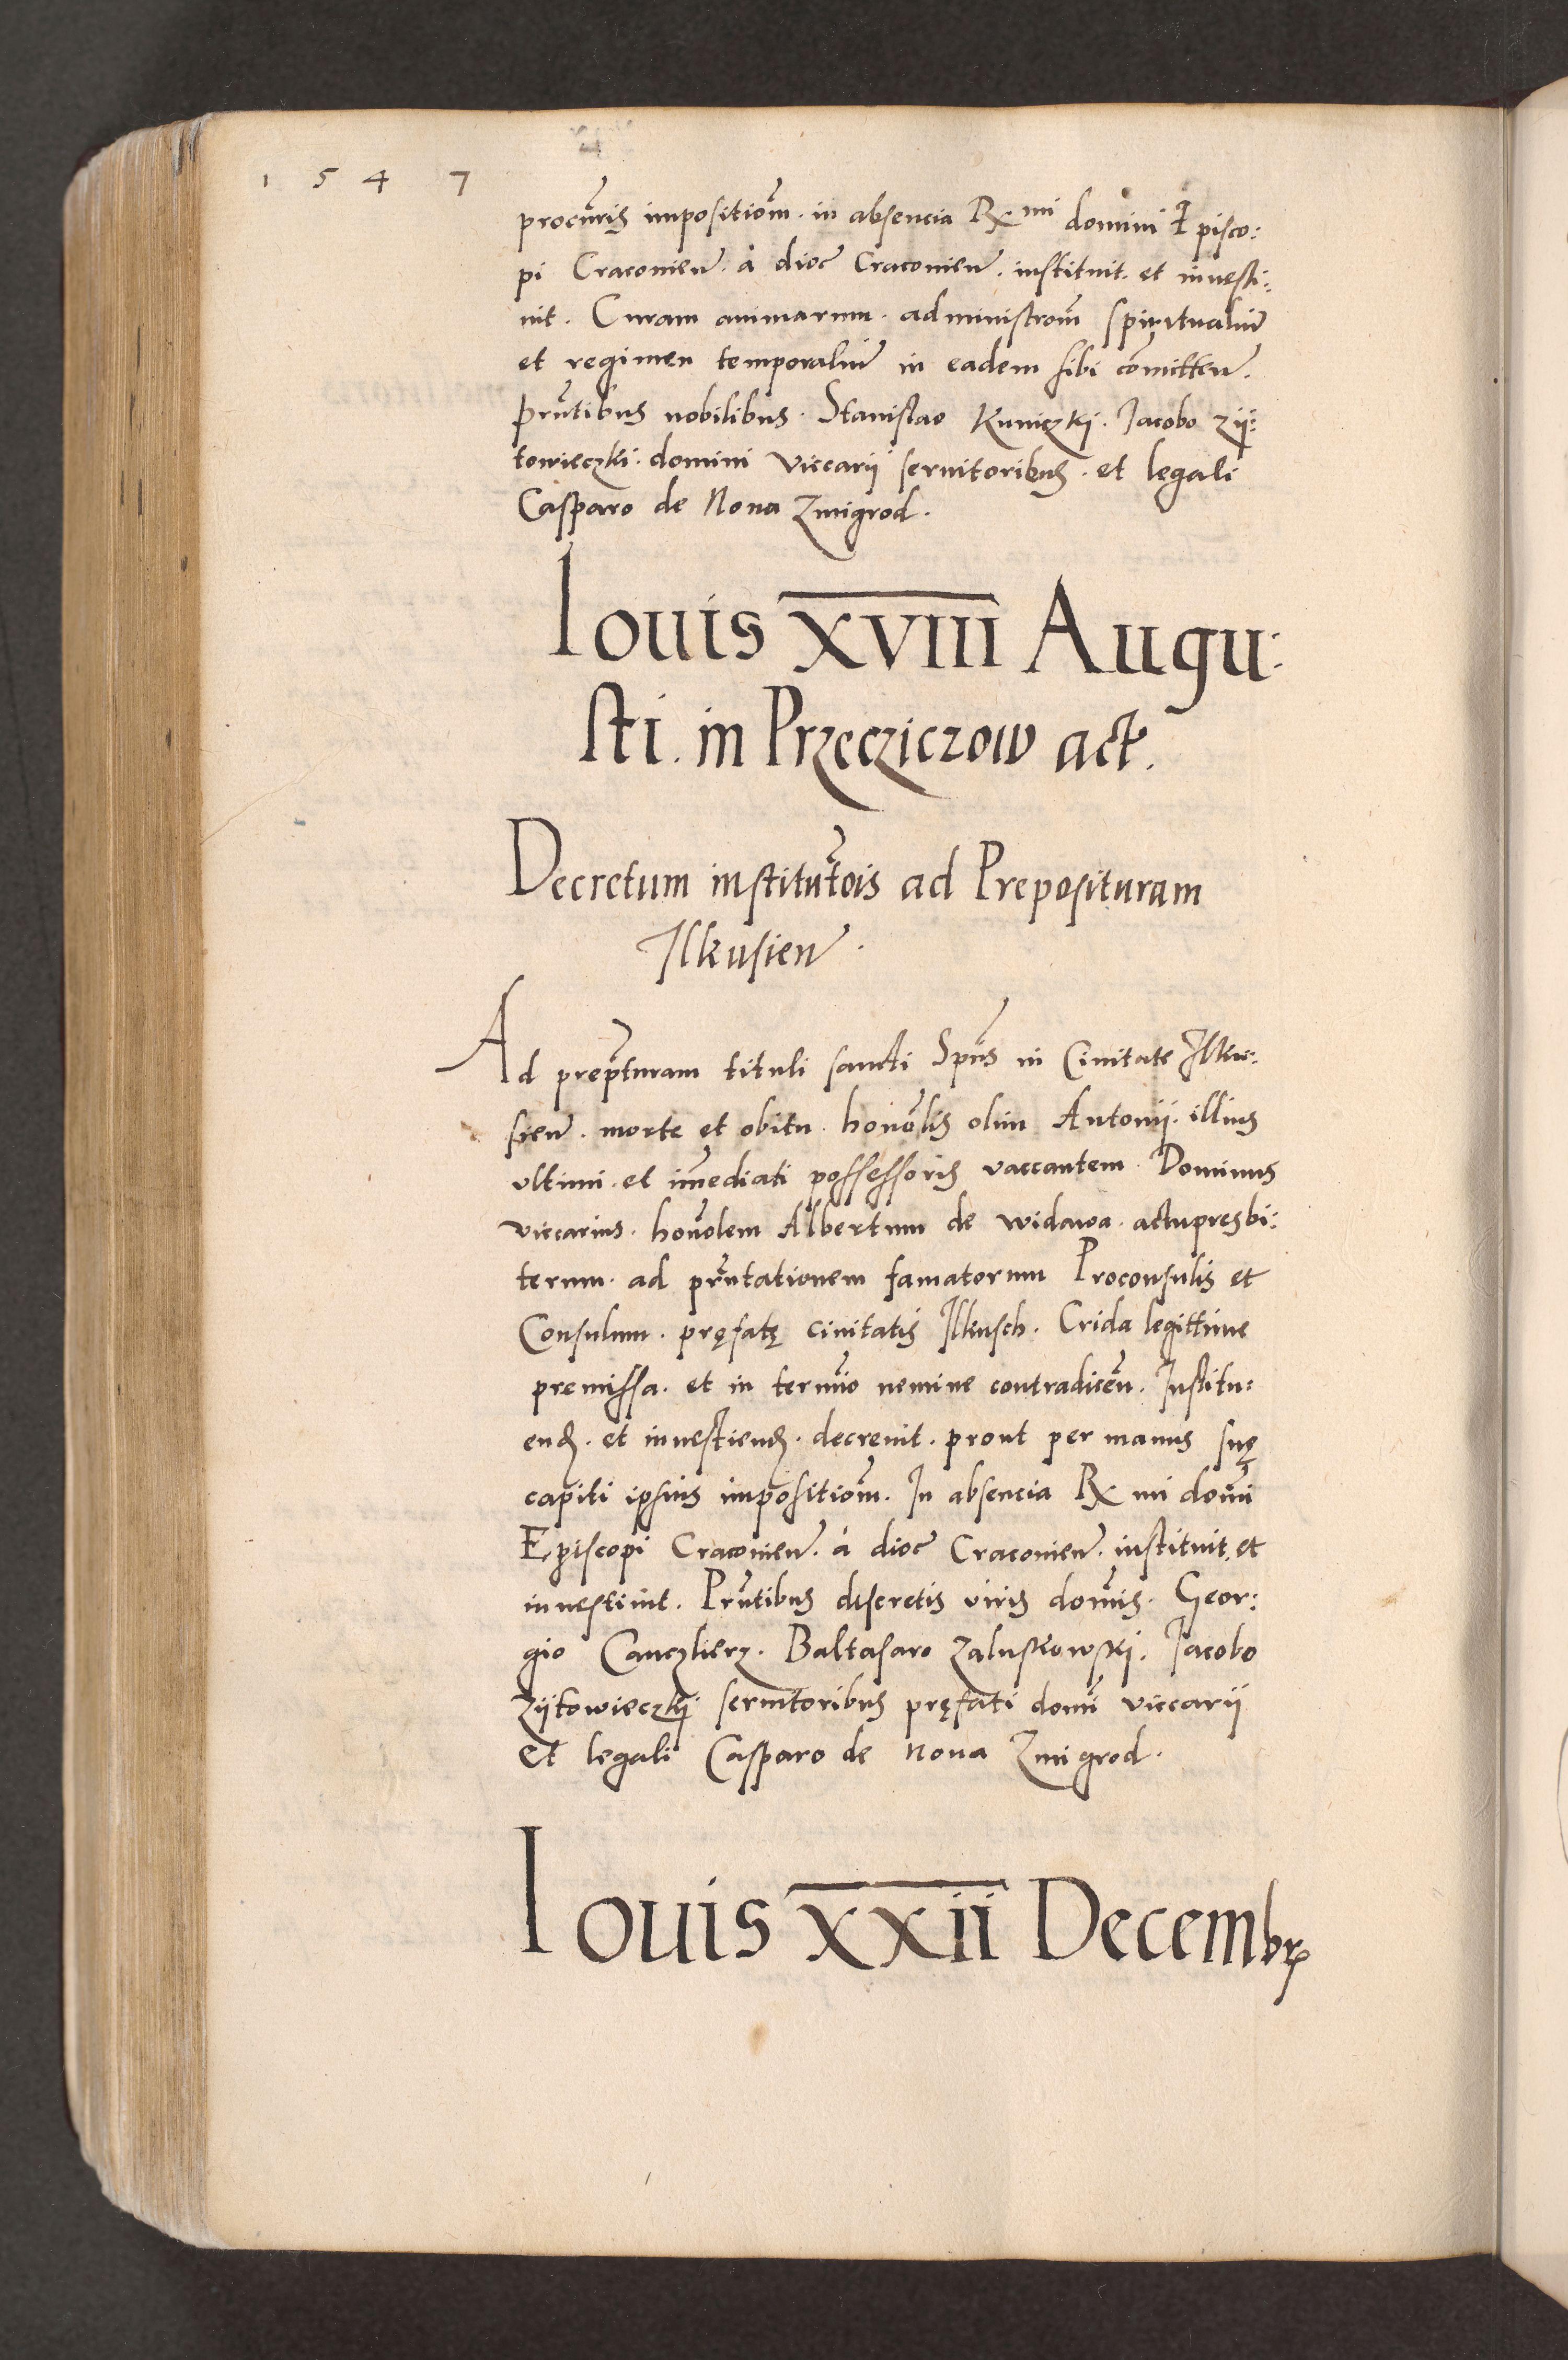 1 5 4 7
procuris impositiom. in absencia Rx mi domini Episco:
pi Cracouien. á dioc Cracouien. instituit. et inuesti:
uit. Curam animarum. administrom spiritualiu
et regimen temporaliu in eadem sibi comitten.
pntibus nobilibus. Stanislao Kuniczki. Jacobo zÿ:
towieczki. domini viccarii seruitoribus. et legali
Casparo de Noua Zmigrod.
Iouis XVIII Augu:
sti. in Przecziczow act.
Decretum institutois ad Preposituram
Ilkusien.
Ad prepturam tituli sancti Spus in Ciuitate Ilku:
sien. morte et obitu. honolis olim Antonij. illius
vltimi. et imediati possessoris vaccantem. Dominus
viccarius. honolem Albertum de widawa. actupresbi:
terum. ad pntationem famatorum Proconsulis et
Consulum. pręfatę ciuitatis Ilkusch. Crida legittime
premissa. et in termio nemine contradicen. Institu:
end. et inuestiend. decreuit. prout per manus suę
capiti ipsius impositiom. In absencia Rx mi domi
Episcopi Cracouien. á dioc Cracouien. instituit. et
inuestiuit. Pntibus discretis viris domis. Geor:
gio Canczlierz. Baltasaro Zaluskowski. Jacobo
Zÿtowieczkj seruitoribus pręfati domi viccarii
et legali Casparo de noua Zmigrod.
Iouis XXii Decembr